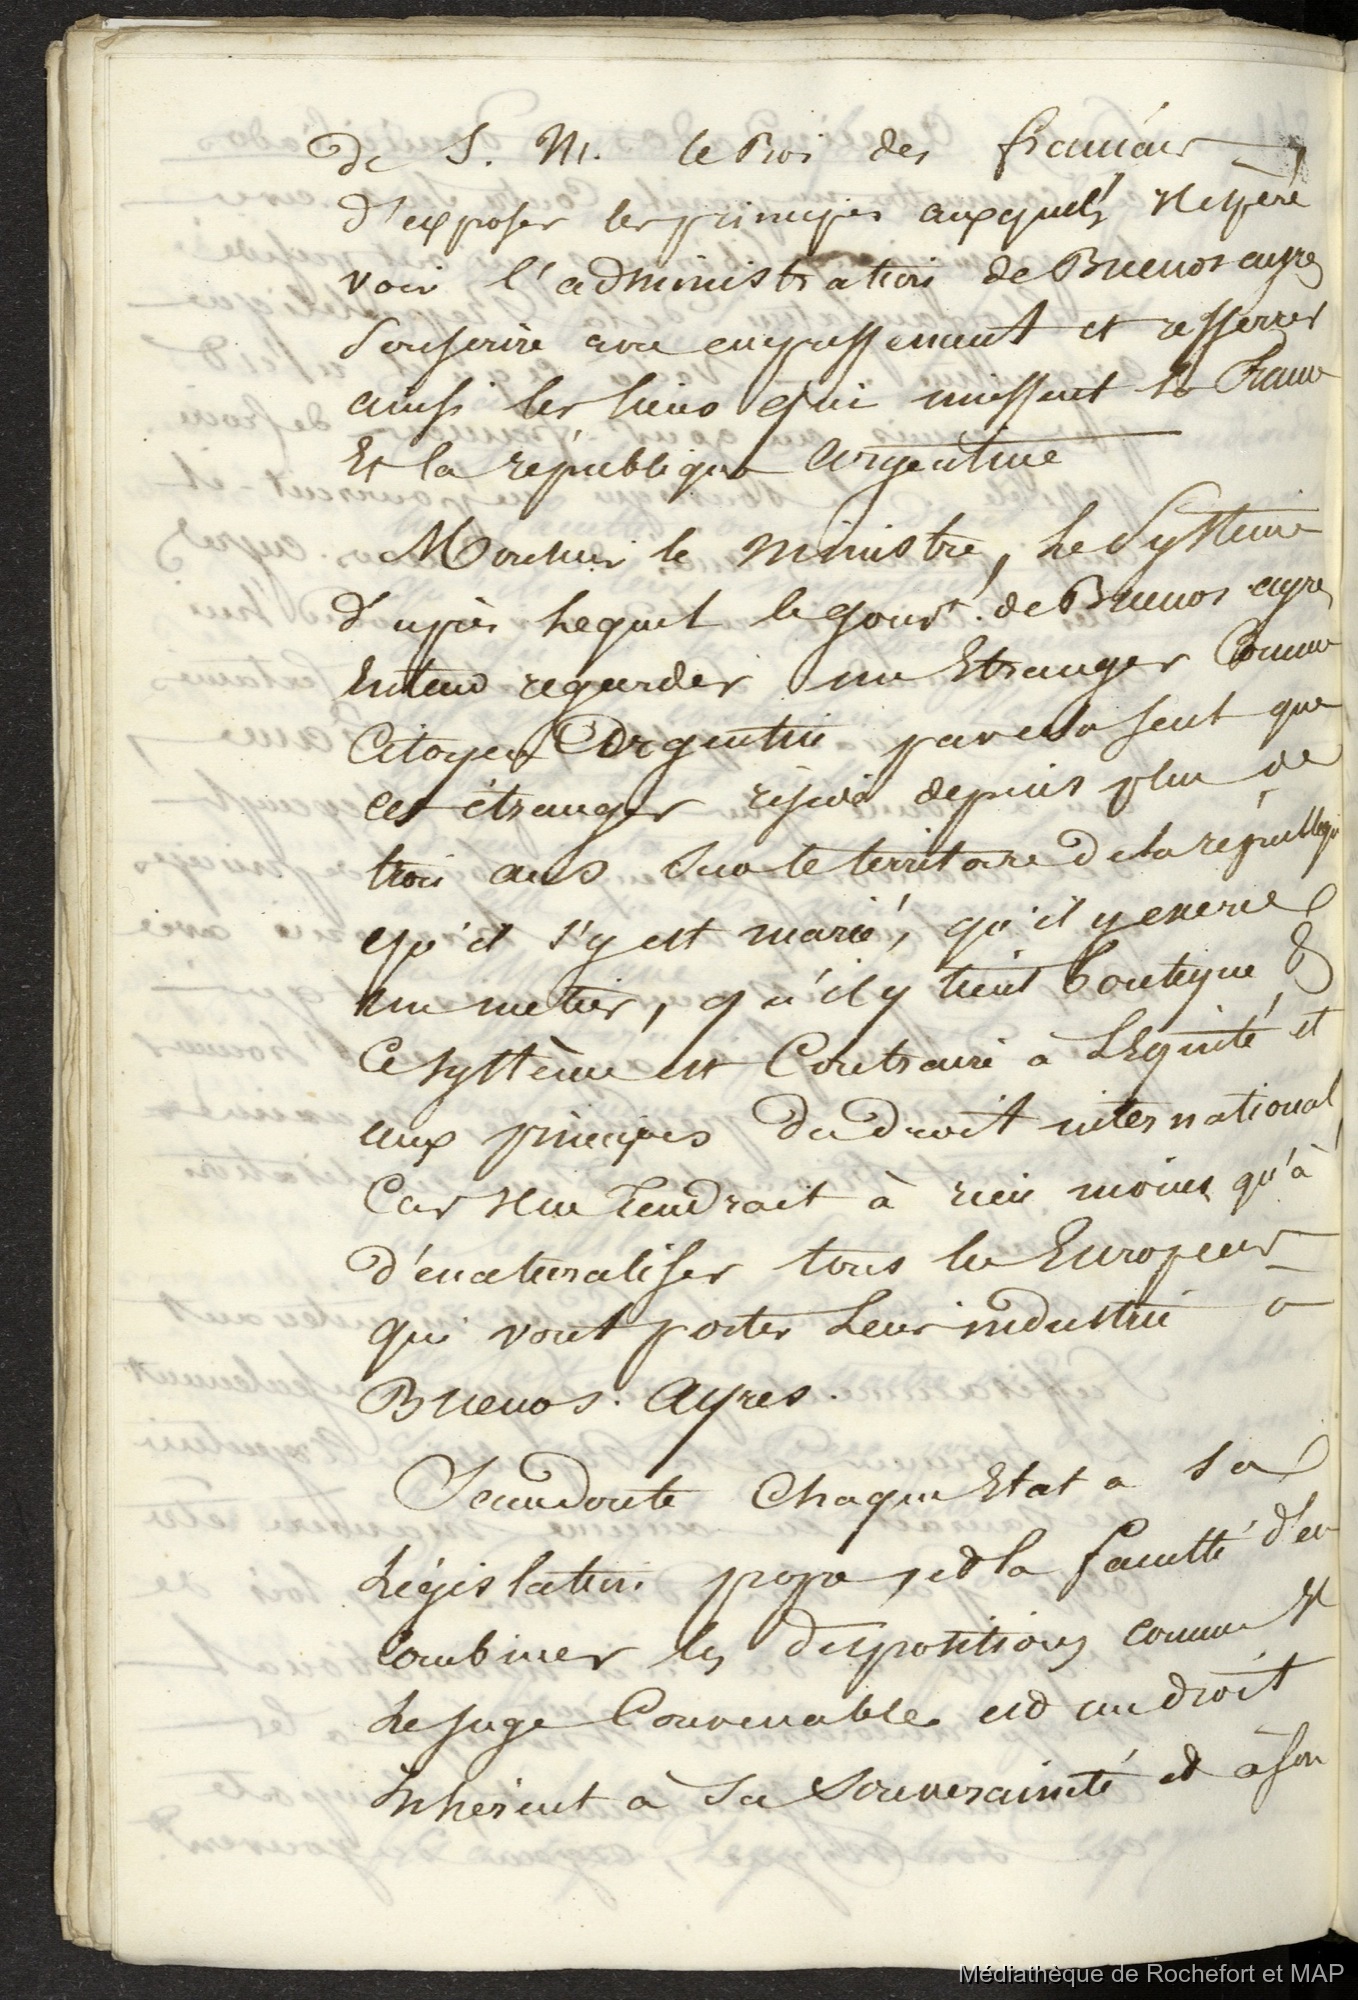 de S. M. le Roi des français
d'exposer les principes auxquels il espère
voir l'administration de Buenos ayres
souscrire avec empressement et resserrer
ainsi les liens qui unissent la France
Et la république argentine
Monsieur le Ministre, Le Système
d'après Lequel le gouvt. de Buenos ayres
Entend regarder un Etranger Comme
Citoyen Argentin par cela seul que
cet étranger réside depuis plus de
trois ans sur le territoire de la république
qu'il s'y est marié, qu'il y exerce
un métier, qu'il y tient boutique &
Ce système est Contraire à L'Equité et
aux principes du droit international
Car il ne tendrait à rien moins qu'à
dénaturaliser tous les Européens
qui vont porter Leur industrie a
Buenos. Ayres.
Sans doute Chaque Etat a sa
Législation propre, et la faculté d'en
combiner les dispositions comme il
Le juge Convenable est un droit
Inhérent à Sa Souveraineté et à son
Médiathèque de Rochefort et MAP